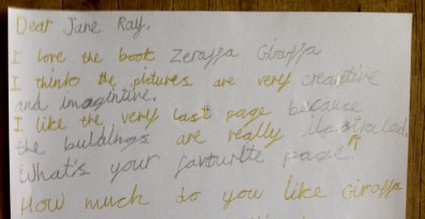 Dear Jane Ray,
I love the book Zeraffa Giraffa
I think the pictures are very creartive
and imagintive.
I like the very last page because
the buldings are really illastrated
What's your favourite page?
How much do you like Giraffa